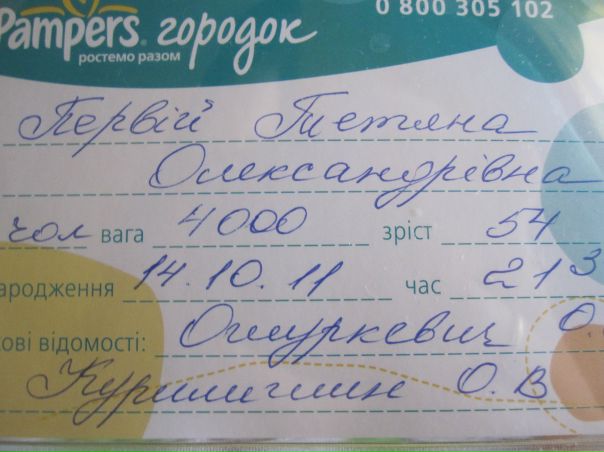 0 800 305 102
Pampers городок
ростемо разом
Первій Тетяна
Олександрівна
чол вага 4000 зріст 54
ародження 14.10.11 час 21 3
кові відомості: Ошуркевич О.
О.В